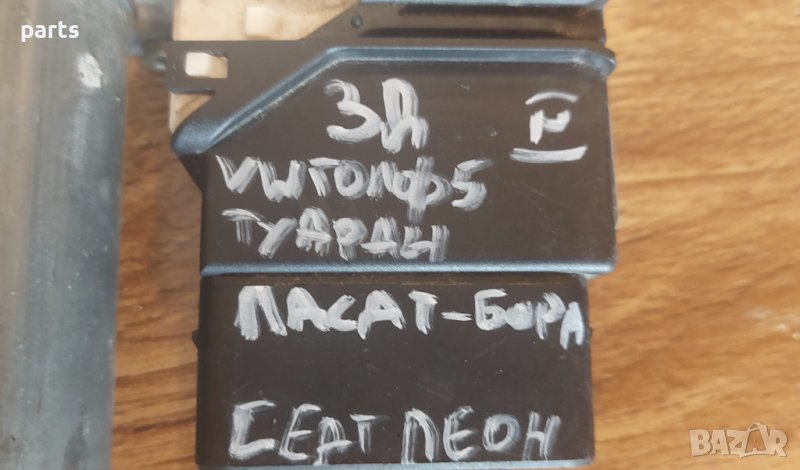 parts
ЗД
VW ГОЛФ 5
ТУАРДЫ
ПАСАТ-БОРА
СЕАТ ЛЕОН
BAZAR